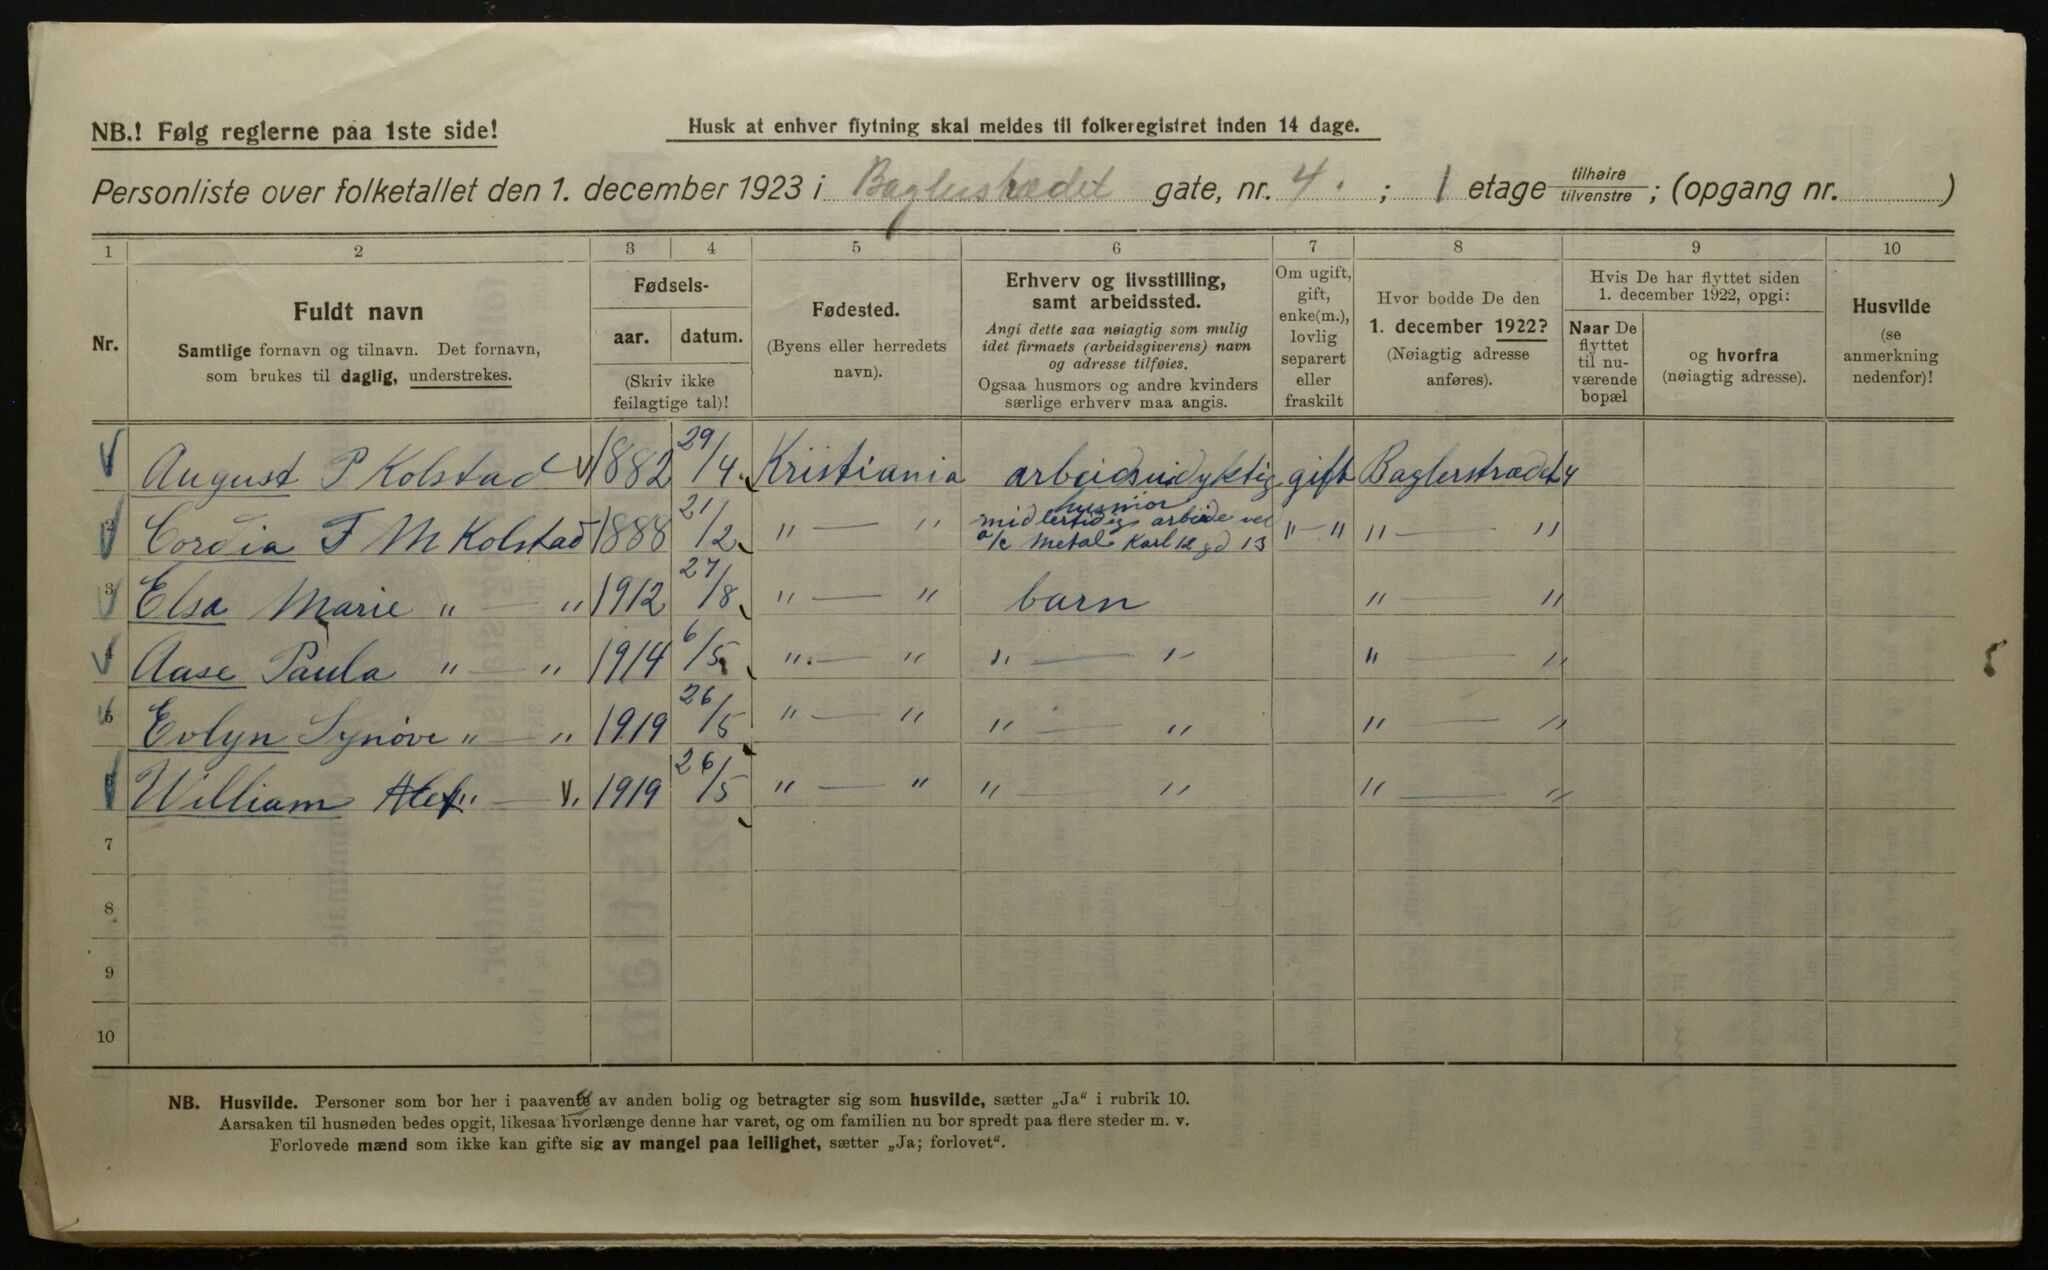 NB.! Følg reglerne paa 1ste side!
Husk at enhver flytning skal meldes til folkeregistret inden 14 dage.
Personliste over folketallet den 1. december 1923 i Baglerstrædet gate, nr. 4. ; 1 etage tilhøire/tilvenstre ; (opgang nr. )
1 2 3 4 5 6 7 8 9 10
Nr.
Fuldt navn
Samtlige fornavn og tilnavn. Det fornavn,
som brukes til daglig, understrekes.
Fødsels-
aar. datum.
(Skriv ikke
feilagtige tal)!
Fødested.
(Byens eller herredets
navn).
Erhverv og livsstilling,
samt arbeidssted.
Angi dette saa nøiagtig som mulig
idet firmaets (arbeidsgiverens) navn
og adresse tilføies.
Ogsaa husmors og andre kvinders
særlige erhverv maa angis.
Om ugift,
gift,
enke(m.),
lovlig
separert
eller
fraskilt
Hvor bodde De den
1. december 1922?
(Nøiagtig adresse
anføres).
Hvis De har flyttet siden
1. december 1922, opgi:
Naar De
flyttet
til nu-
værende
bopæl
og hvorfra
(nøiagtig adresse).
Husvilde
(se
anmerkning
nedenfor)!
August P Kolstad 1882 29/4. Kristiania arbeidsudyktig gift Baglerstrædet 4
husmor
2 Cordia F M Kolstad 1888 21/2 " — " midlertidig arbeide ved " — " " — "
a/c Metal Karl 12 gd 13
3 Elsa Marie " — " 1912 27/8 " — " barn " — "
4 Aase Paula " — " 1914 6/5 " — " " — " " — "
5 Evlyn Synøve " — " 1919 26/5 " — " " — " " — "
6 William Alef " — " 1919 26/5 " — " " — " " — "
7
8
9
10
NB. Husvilde. Personer som bor her i paavente av anden bolig og betragter sig som husvilde, sætter „Ja“ i rubrik 10.
Aarsaken til husnøden bedes opgit, likesaa hvorlænge denne har varet, og om familien nu bor spredt paa flere steder m. v.
Forlovede mænd som ikke kan gifte sig av mangel paa leilighet, sætter „Ja; forlovet“.